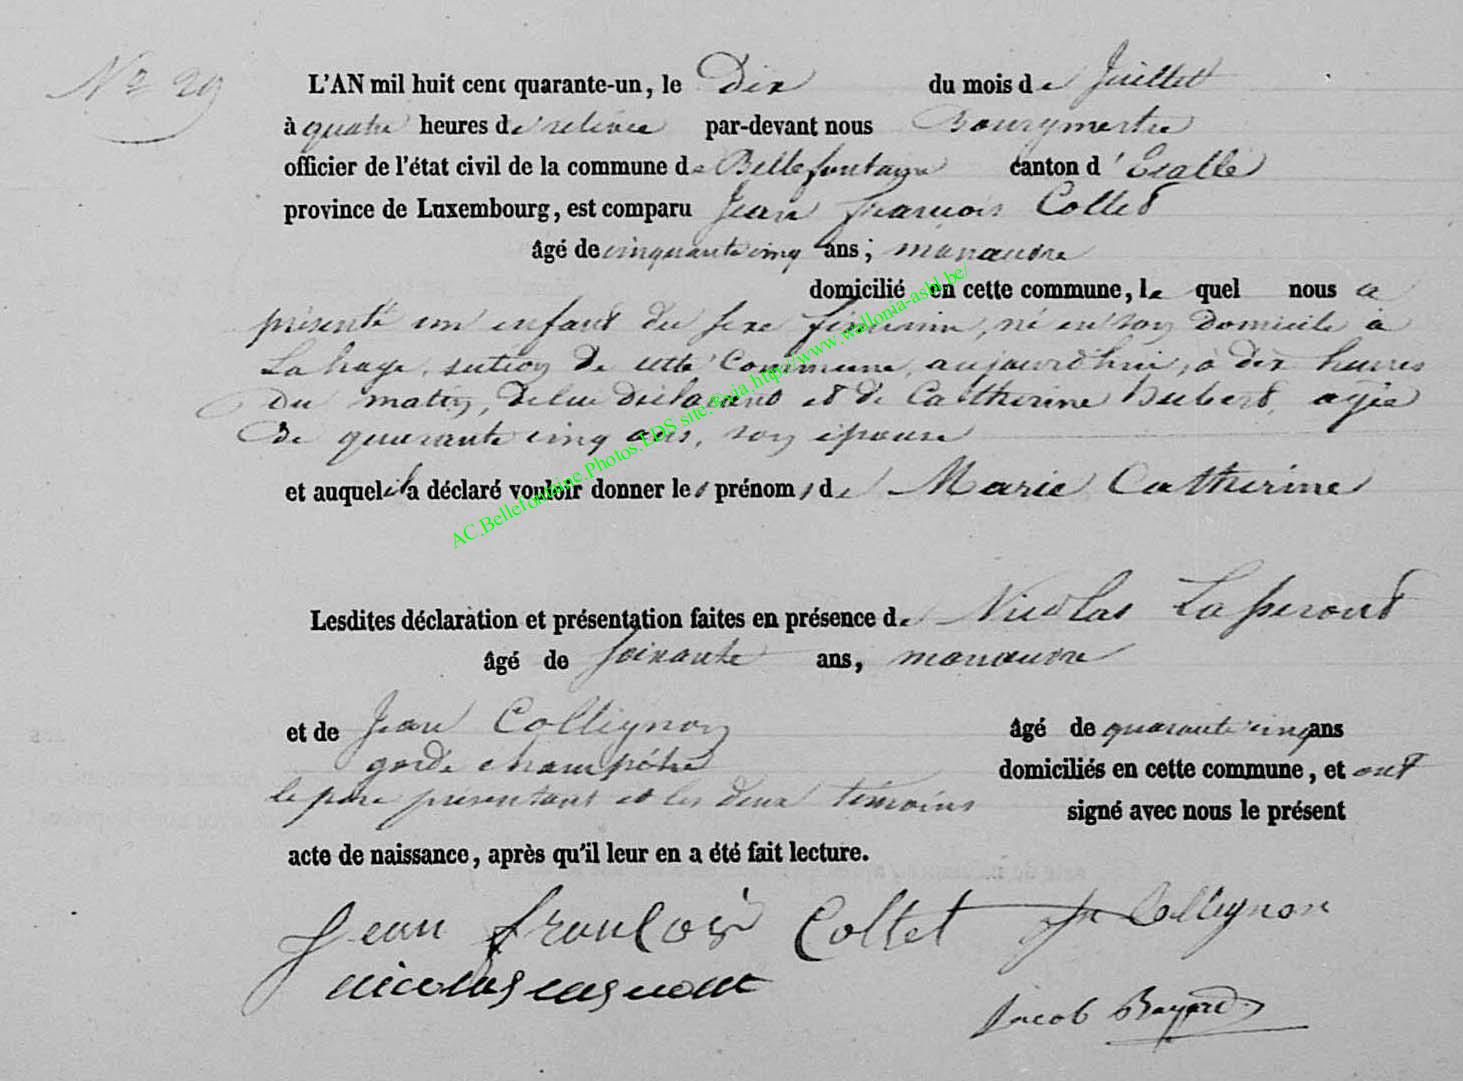 N° 29
L'AN mil huit cent quarante-un, le Dix du mois de Juillet
à quatre heures de relevée par-devant nous Bourgmestre
officier de l'état civil de la commune de Bellefontaine canton d'Etalle
province de Luxembourg, est comparu Jean François Collet
âgé de cinquante cinq ans; manœuvre
domicilié en cette commune, le quel nous a
présenté un enfant du sexe féminin, né en son domicile à
Lahage, section de cette Commune, aujourd'hui, à dix heures
du matin, de lui déclarant et de Catherine Hubert, agée
de quarante cinq ans, son épouse
et auquel il a déclaré vouloir donner les prénoms de Marie Catherine
AC.Bellefontaine.Photos.LDS site:©via.http://www.wallonia-asbl.be/
Lesdites déclaration et présentation faites en présence de Nicolas
âgé de soixante ans, manœuvre
et de Jean Collignon âgé de quarante cinq ans
garde champêtre domiciliés en cette commune, et ont
le père présentant et les deux témoins signé avec nous le présent
acte de naissance, après qu'il leur en a été fait lecture.
Jean françois Collet J Collignon
nicolas
Jacob Bayard